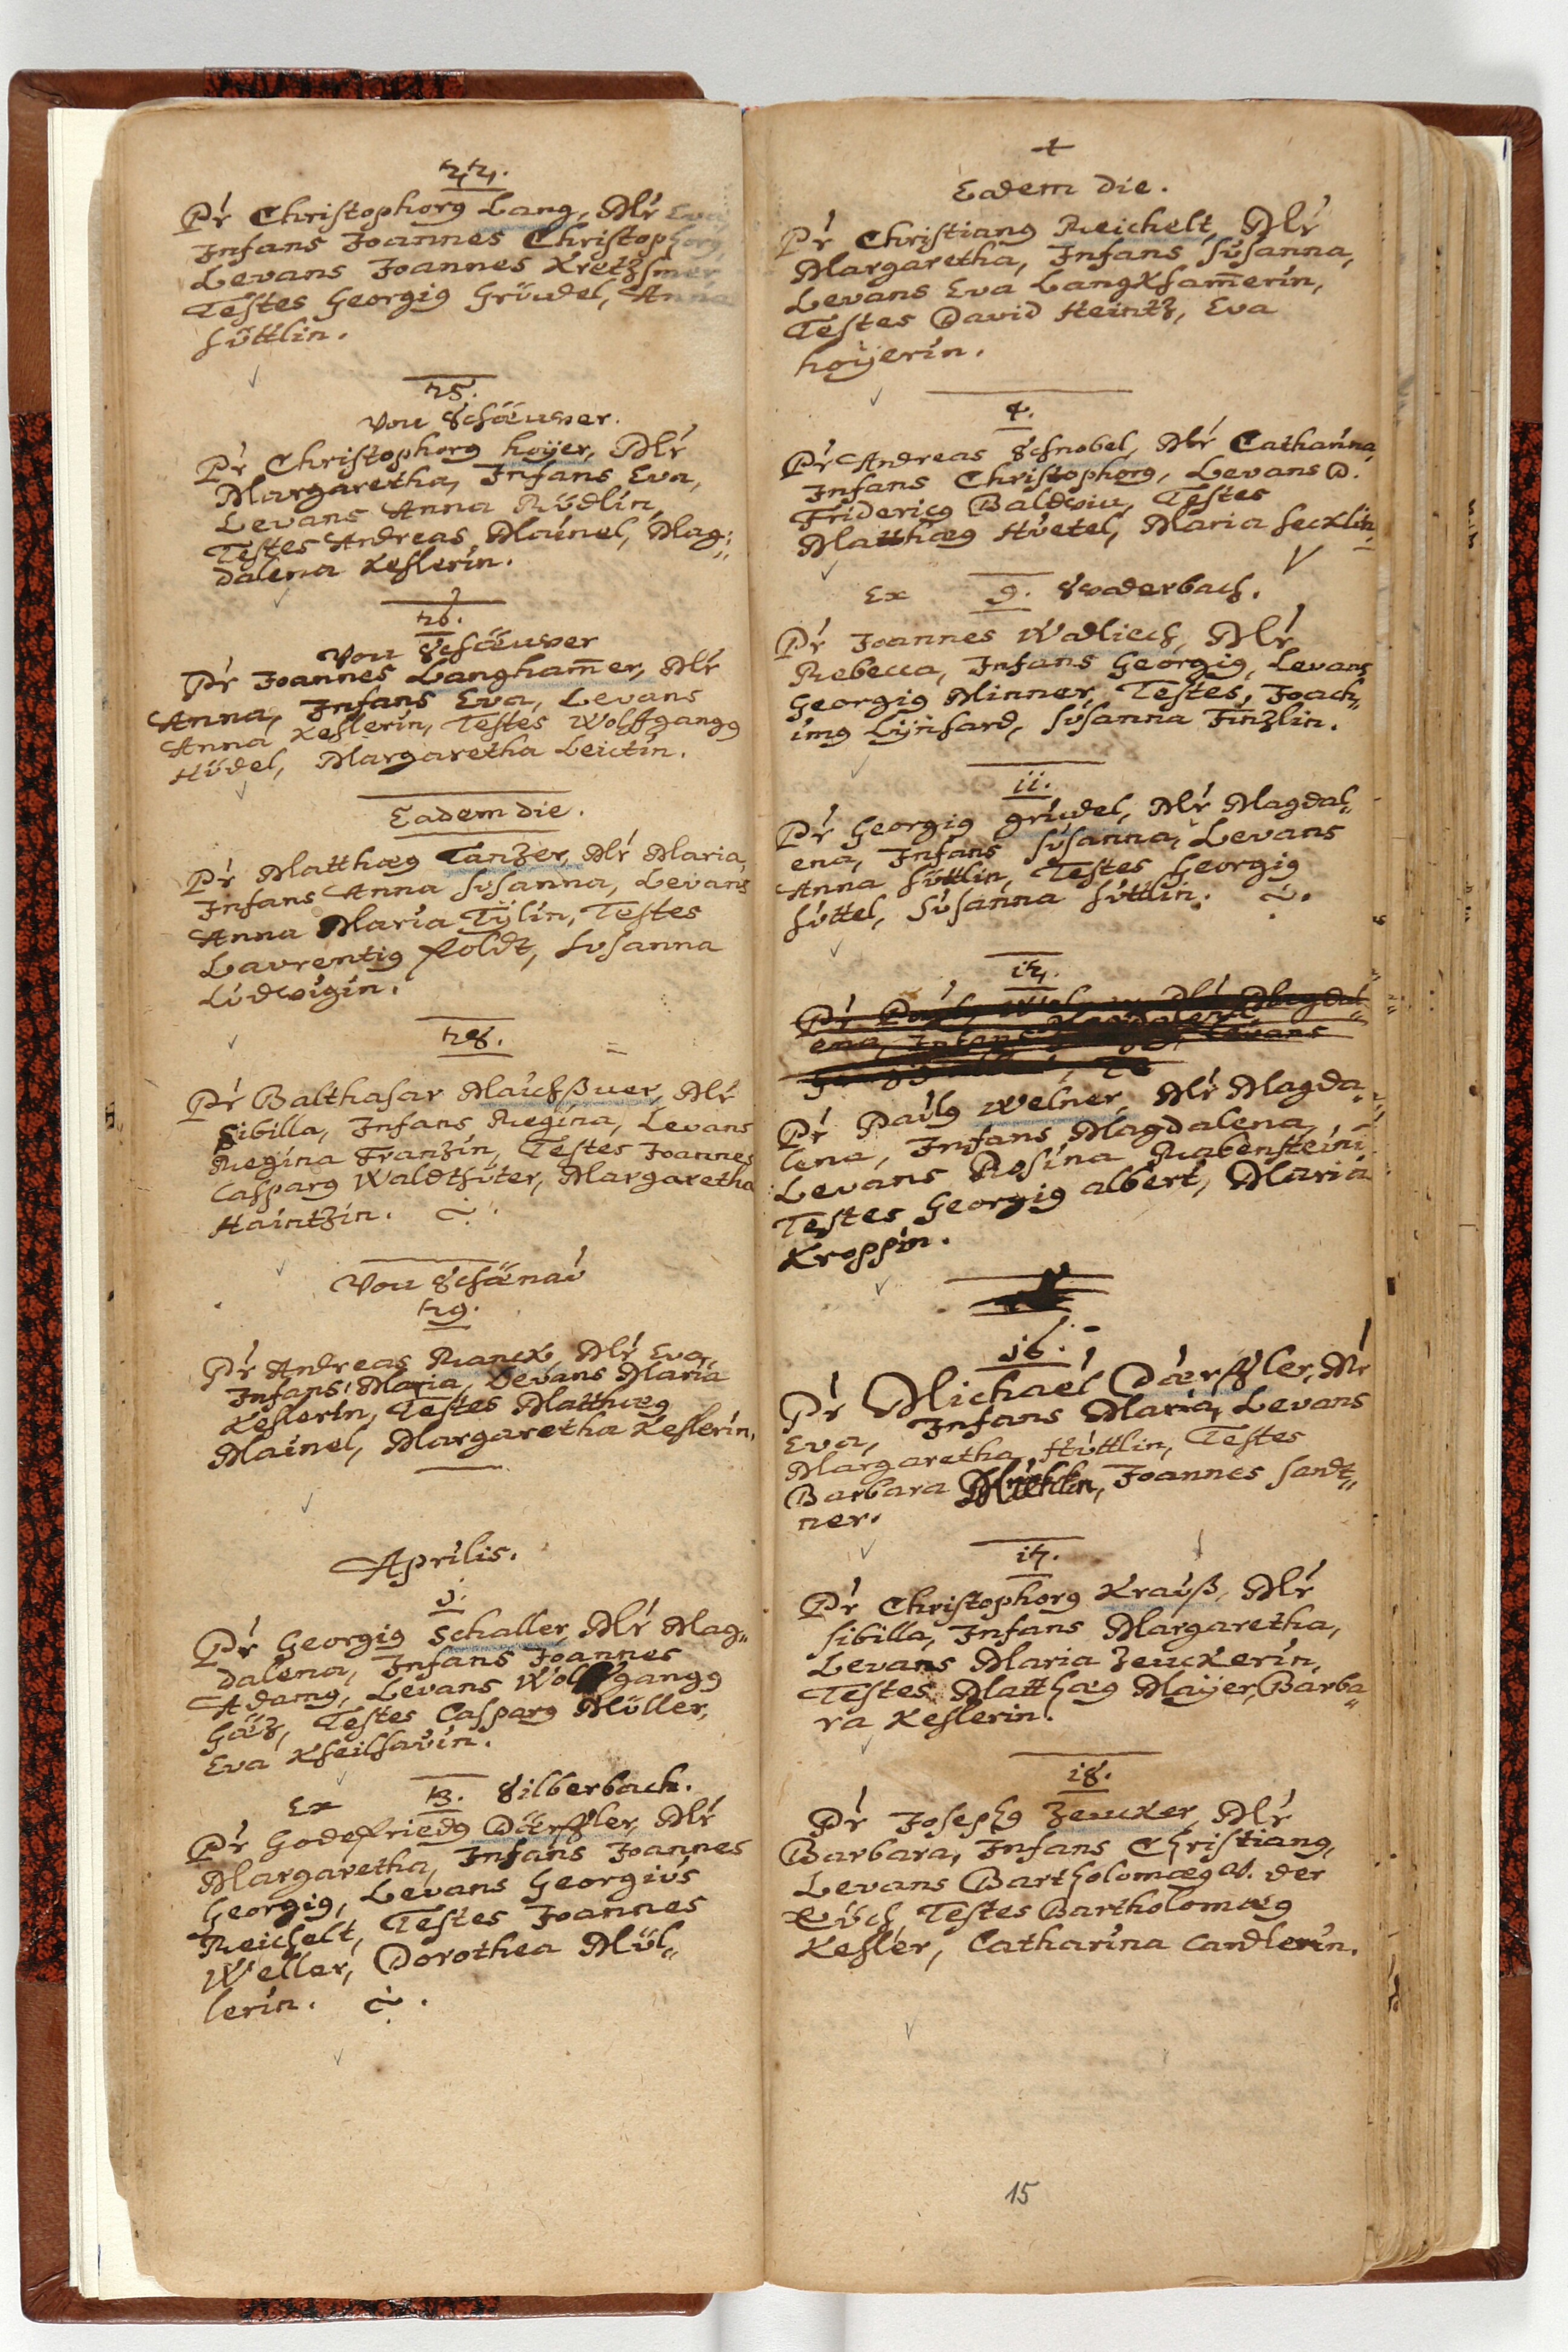 22.
Pr Christophorꝰ Lang, Mr Eva
Infans Joannes Christophorꝰ
Levans Joannes Kretzsmer
Testes Georgiꝰ Grüdel, Anna
süttlin.
25.
Von
Pr Christophorꝰ hoÿer, Mr
Margaretha, Infans Eva,
Levans Anna Rüdlin,
Testes Andreas Mainel, Mag:
dalena Keslerin.
26.
Von
Pr Joannes Langham̄er, Mr
Anna, Infans Eva, Levans
Anna Keslerin, Testes Wolffgangꝰ
Hüdel, Margaretha Leictin.
Eadem die.
Pr Matthæꝰ Tanzer, Mr Maria,
Infans Anna susanna, Levans
Anna Maria Tÿlin, Testes
Laurentiꝰ floldt, susanna
Ludwigin.
28.
Pr Balthasar Mr
Sibilla, Infans Regina, Levans
Regina Franzin, Testes Joannes
Casparꝰ Waldthüter, Margaretha
Haintzin.
Von Schönau
29.
Pr Andreas Ranck Mr Eva,
Infans Maria, Levans Maria
Keslerin, Testes Matthæꝰ
Mainel, Margaretha Keslerin,
Aprilis.
1.
Pr Georgiꝰ Schaller, Mr Mag„
dalena, Infans Joannes
Adamꝰ, Levans Wolffgangꝰ
Göz, Testes Casparꝰ Müller,
Eva
Ex 3. Silberbach.
Pr Godefriedꝰ Döerffler, Mr
Margaretha, Infans Joannes
Georgiꝰ, Levans Georgius
Reichelt, Testes Joannes
Weller, Dorothea Mül„
lerin.
Eadem die.
Pr Christianꝰ Reichelt, Mr
Margaretha, Infans susanna,
Levans Eva Langkham̄erin,
Testes David Heintz, Eva
hoÿerin.
4.
Pr Andreas Schnobel, Mr Catharina,
Infans Christophorꝰ, Levans D.
Fridericꝰ Baldwin, Testes
Matthæꝰ Huetel, Maria secklin
Ex 9. Swaderbach.
Pr Joannes Wadliech, Mr
Rebecca, Infans Georgiꝰ, Levans
Georgiꝰ Minner, Testes, Joach„
imꝰ Lÿnhard, susanna Finzlin.
11.
Pr Georgiꝰ grüdel, Mr Magdal„
ena, Infans susanna, Levans
Anna süttlin, Testes Georgiꝰ
süttel, susanna süttlin.
12.
Pr Paulꝰ Mr Magdal„
ena, Infans Levans
Pr Paulꝰ Welner, Mr Magda„
lena, Infans Magdalena,
Levans Rosina Rabensteini
Testes Georgiꝰ albert, Maria
Kroppin.
16.
Pr Michael Döerffler, Mr
Eva, Infans Maria, Levans
Margaretha Hüttlin, Testes
Barbara Joannes sandt„
ner.
17.
Pr Christophorꝰ Krauß, Mr
sibilla, Infans Margaretha,
Levans Maria Zeuckerin,
Testes Matthæꝰ Maÿer, Barba„
ra Keslerin.
18.
Pr Josephꝰ Zeucker, Mr
Barbara, Infans Christianꝰ,
Levans Bartholomæꝰ der
Testes Bartholomæꝰ
Kesler, Catharina Candlerin.
15